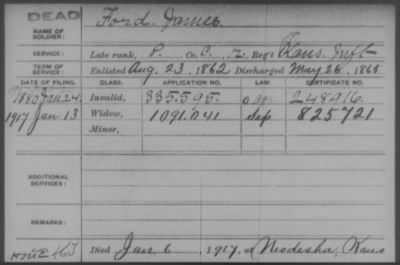 DEAD
Ford James.
NAME OF SOLDIER:
SERVICE: Late rank, P. Co. C, 12 Reg't Kans. Inft
TERM OF SERVICE: Enlisted Aug. 23, 1862 Discharged May 26, 1865
DATE OF FILING. CLASS. APPLICATION NO. LAW. CERTIFICATE NO.
Invalid, 335.595. 248416.
1917 Jan 13 Widow, 1091.041 Sep 825721
Minor,
ADDITIONAL SERVICES:
REMARKS:
Died Jan. 6, 1917, at Neodesha, Kans